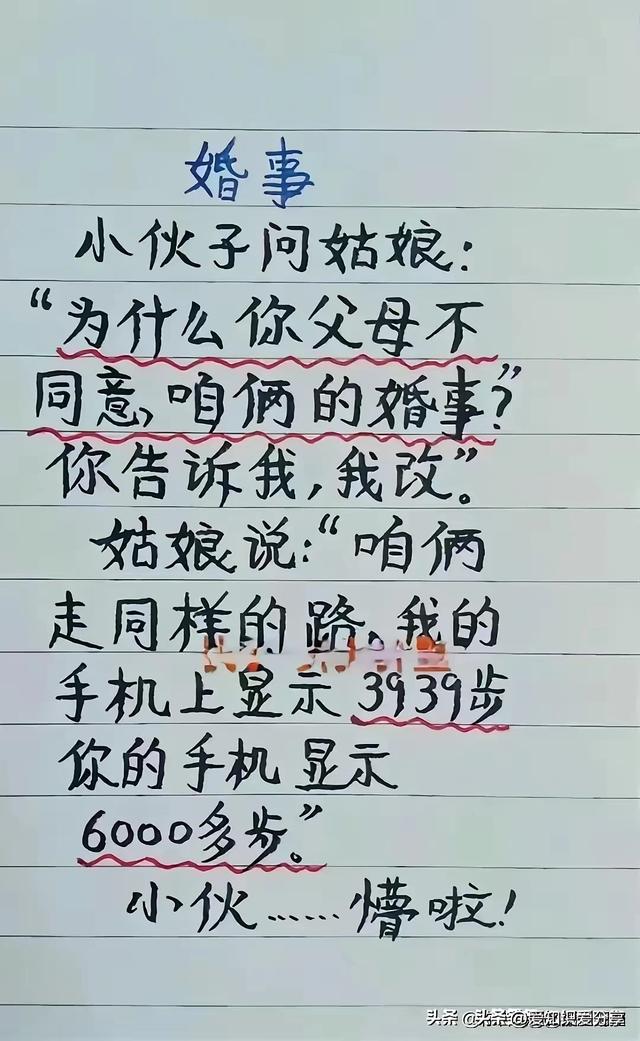 婚事
小伙子问姑娘：
“为什么你父母不
同意，咱俩的婚事？”
你告诉我，我改”。
姑娘说：“咱俩
走同样的路，我的
手机上显示3939步
你的手机显示
6000多步。”
小伙……懵啦！
头条 @头条爱知识爱分享